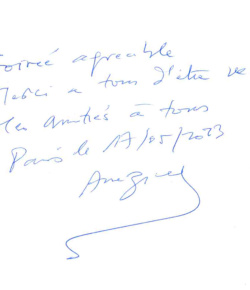 oirée agréable
Merci a tous d'être ve
les amitiés à tous
Paris le 17/05/2023